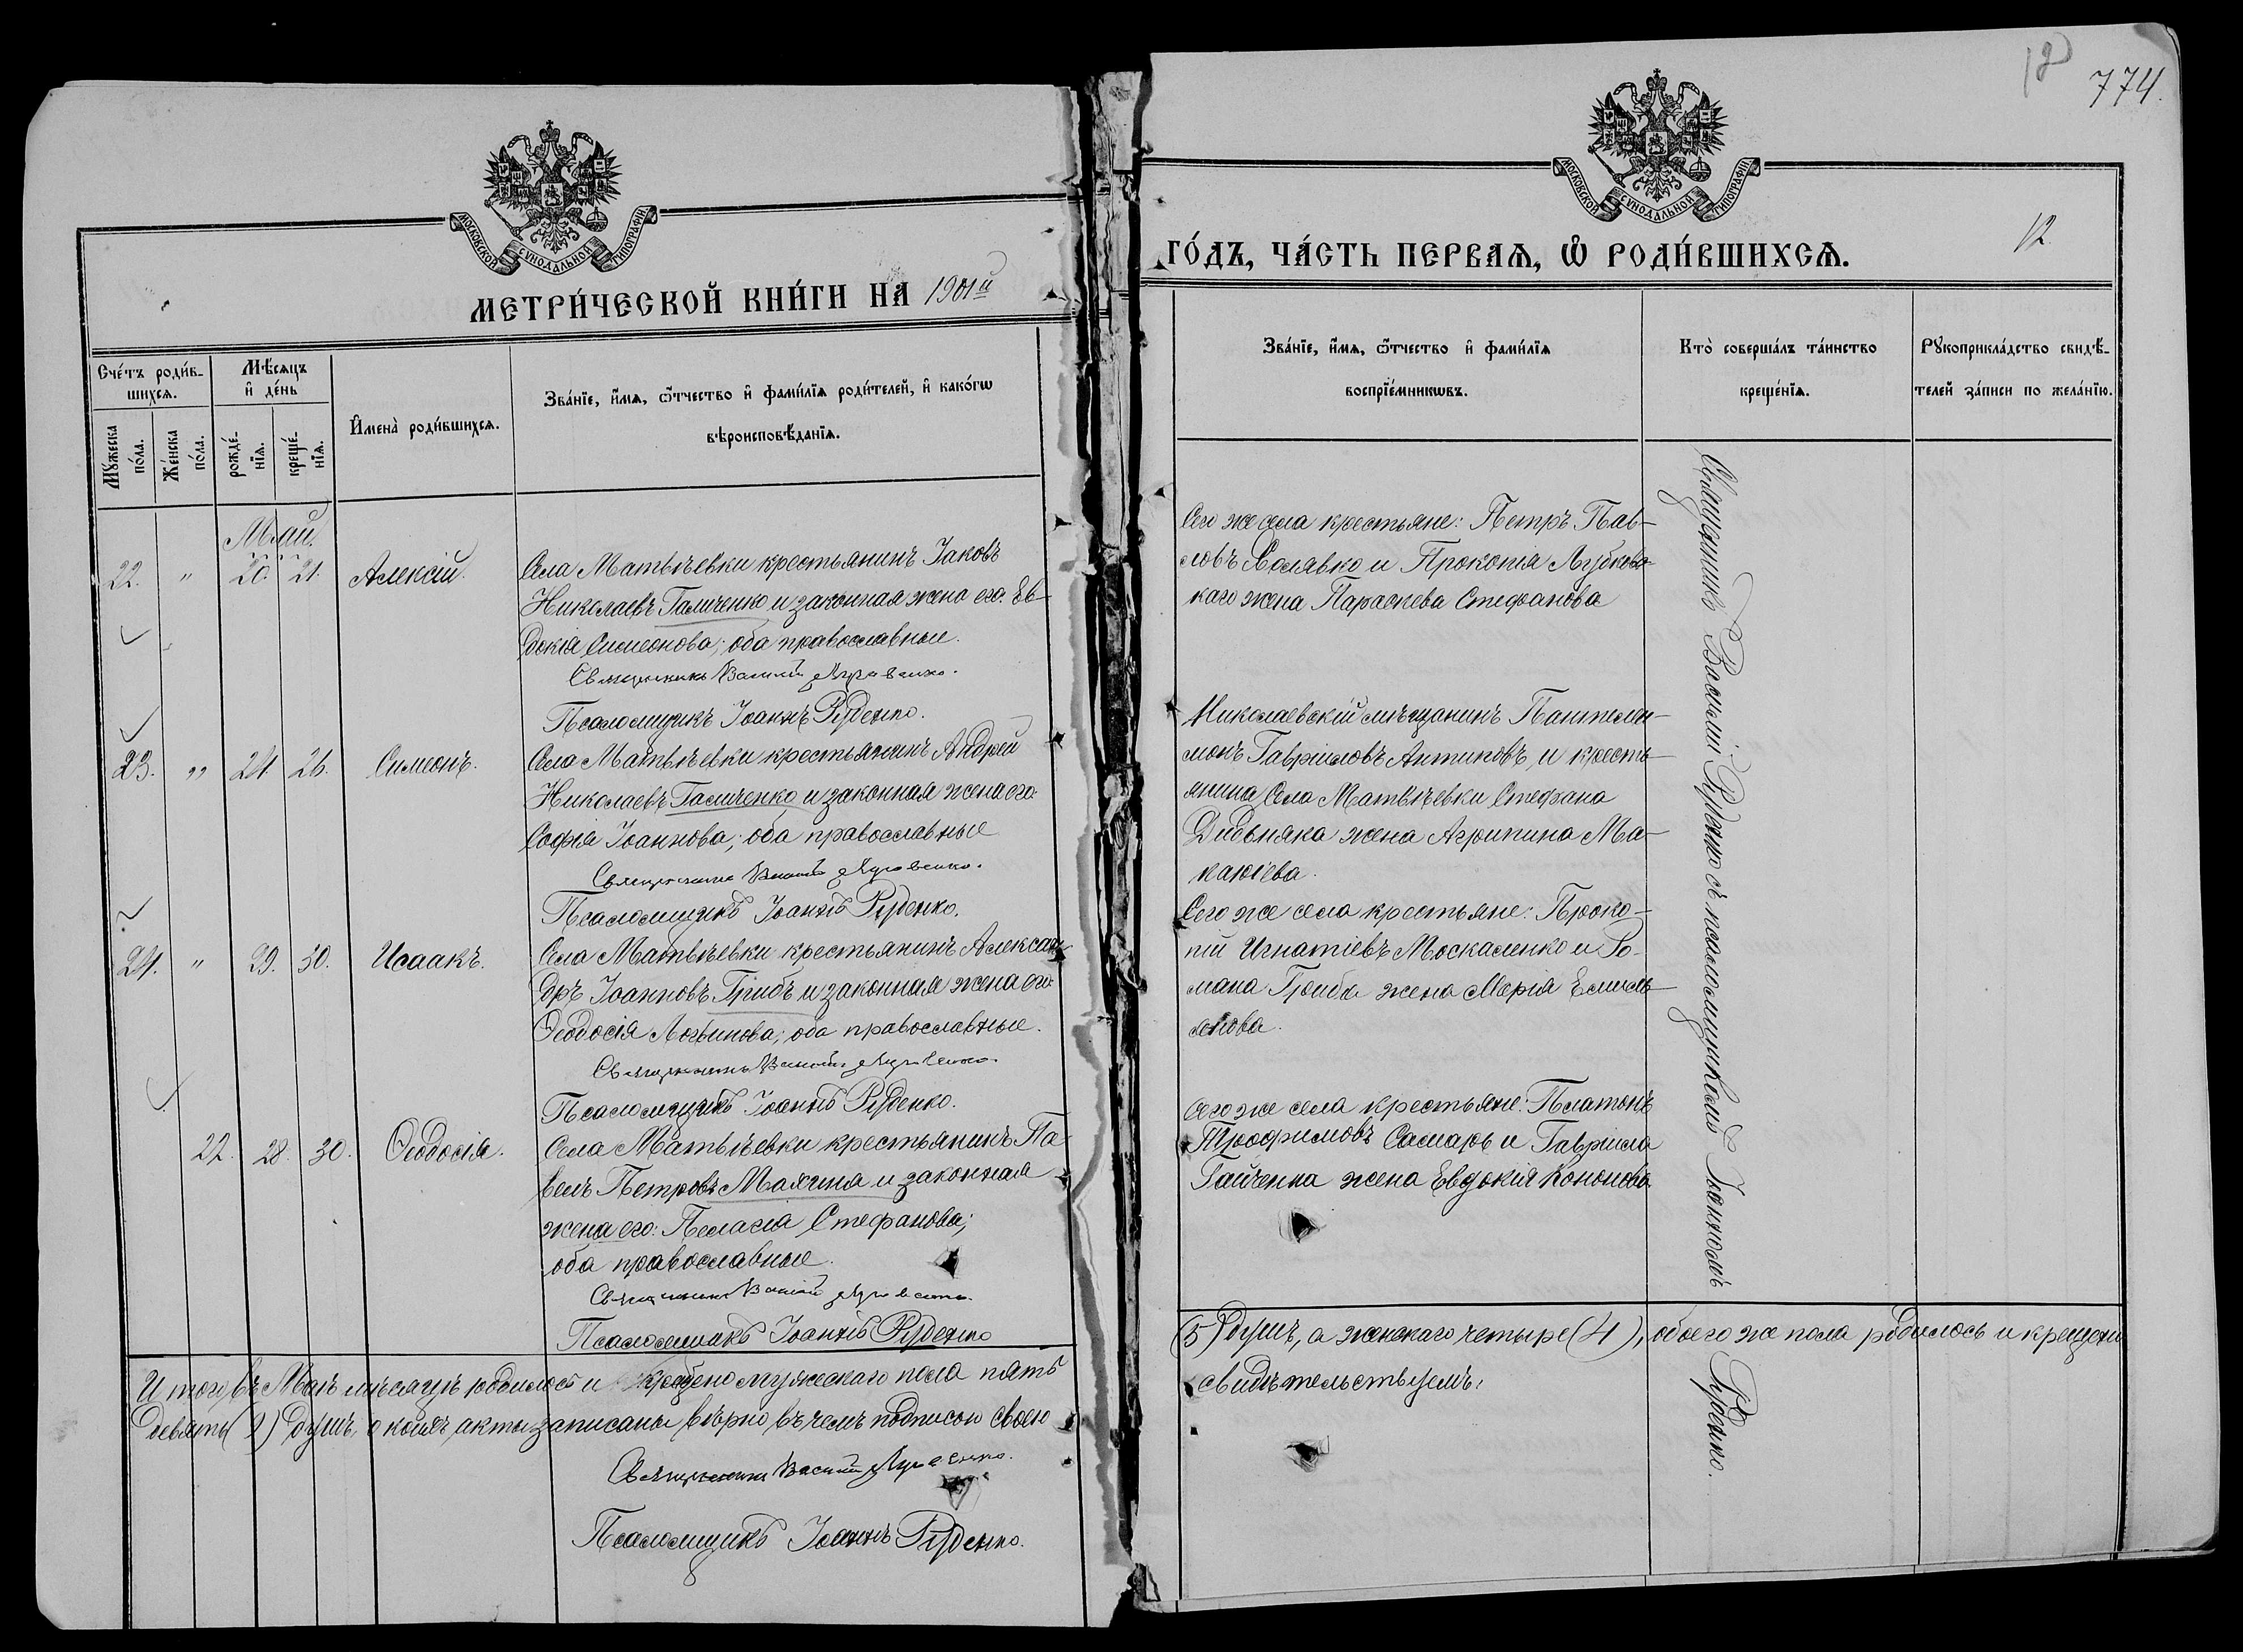 МОСКОВСКОЙ СУНОДАЛЬНОЙ ТИПОГРАФІИ
МЕТРИ́ЧЕСКОЙ КНИ́ГИ НА 1901й
Сче́тъ роди́в-
шихсѧ.
Мѣ́сѧцъ
и҆ де́нь
Мꙋ́жеска
по́ла.
Же́нска
по́ла.
рожде́-
нїѧ.
креще́-
нїѧ.
И҆мена̀ роди́вшихсѧ.
Зва́нїе, и҆́мѧ, ѻ҆́тчество и҆ фами́лїѧ роди́телей, и҆ како́гѡ
вѣроисповѣ́данїѧ.
Май.
22. " 20. 21. Алексій.
Села Матвѣевки крестьянинъ Іаковъ
Николаевъ Галиченко и законная жена его Ев-
докія Симеонова; оба православные.
Священникъ Василій
Псаломщикъ Іоаннъ Руденко.
23. " 24. 26. Симеонъ.
Села Матвѣевки крестьянинъ Андрей
Николаевъ Галиченко и законная жена его
Софія Іоаннова; оба православные
Священникъ Василій
Псаломщикъ Іоаннъ Руденко.
24. " 29. 30. Исаакъ.
Села Матвѣевки крестьянинъ Алексан-
дръ Іоанновъ Грибъ и законная жена его
Ѳеодосія Логвинова; оба православные.
Священникъ Василій
Псаломщикъ Іоаннъ Руденко.
22. 28. 30. Ѳеодосія.
Села Матвѣевки крестьянинъ Па-
велъ Петровъ Маячина и законная
жена его: Пелагія Стефанова;
оба православные.
Священникъ Василій
Псаломщикъ Іоаннъ Руденко
Итого въ Маѣ мѣсяцѣ родилось и крещено мужескаго пола пять
девять (9) душъ, о коихъ акты записаны вѣрно, въ чемъ подписью своею
Священникъ Василій
Псаломщикъ Іоаннъ Руденко.
774.
12
МОСКОВСКОЙ СУНОДАЛЬНОЙ ТИПОГРАФІИ
ГО́ДЪ, ЧА́СТЬ ПЕРВАѦ, Ѡ҆ РОДИ́ВШИХСѦ.
Зва́нїе, и҆́мѧ, ѻ҆́тчество и҆ фами́лїѧ
воспрїе́мникѡвъ.
Кто̀ соверша́лъ та́инство
креще́нїѧ.
Рꙋкоприкла́дство свидѣ́-
телей за́писи по жела́нїю.
Сего же села крестьяне: Петръ Пав-
ловъ Холявко и Прокопія Лубковс-
каго жена Параскева Стефанова
Николаевскій мѣщанинъ Пантелей-
монъ Гавріиловъ Антиповъ, и кресть-
янина Села Матвѣевки Стефана
жена Агрипина Ма-
каріева.
Сего же села крестьяне: Проко-
пій Игнатіевъ Москаленко и Ро-
мана Гриба жена Марія Емиль-
янова.
Сего же села крестьяне: Платонъ
Трофимовъ Самарь и Гавріила
Гайченка жена Евдокія Кононова.
Священникъ Василій съ псаломщикомъ Іоанномъ
Руденко.
(5) душъ, а женскаго четыре (4), обоего же пола родилось и крещено
свидѣтельствуемъ: